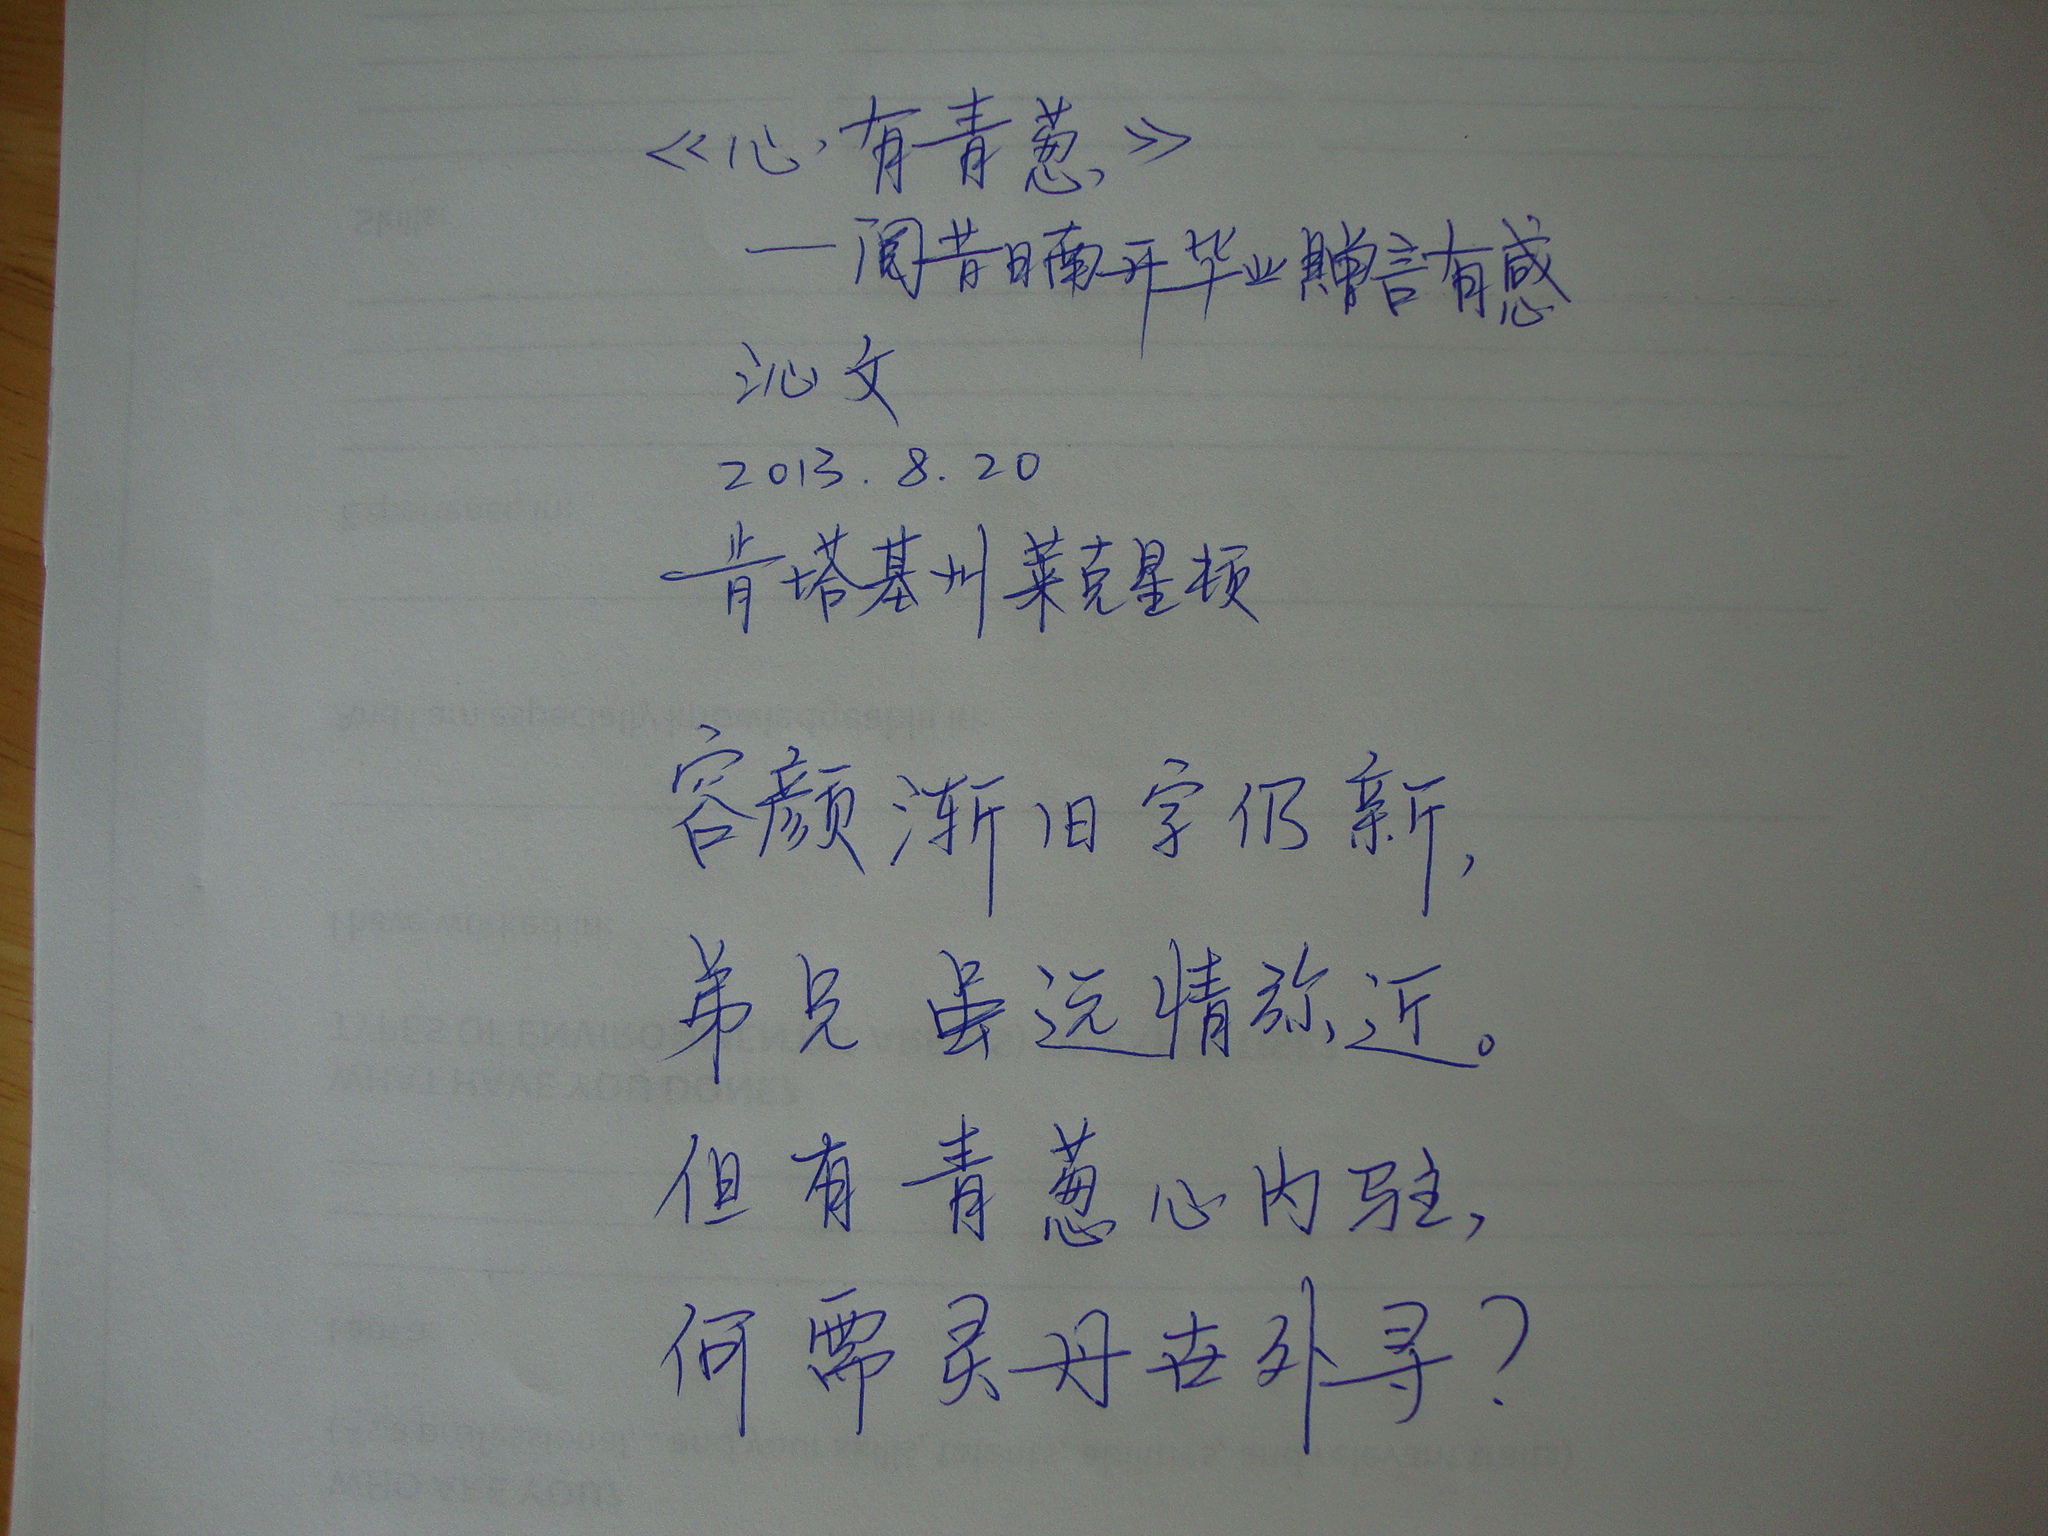 《心有青葱》
—阅昔日南开毕业赠言有感
沁文
2013.8.20
肯塔基州莱克星顿
容颜渐旧字仍新，
弟兄虽远情弥近。
但有青葱心内驻，
何需灵丹在外寻？